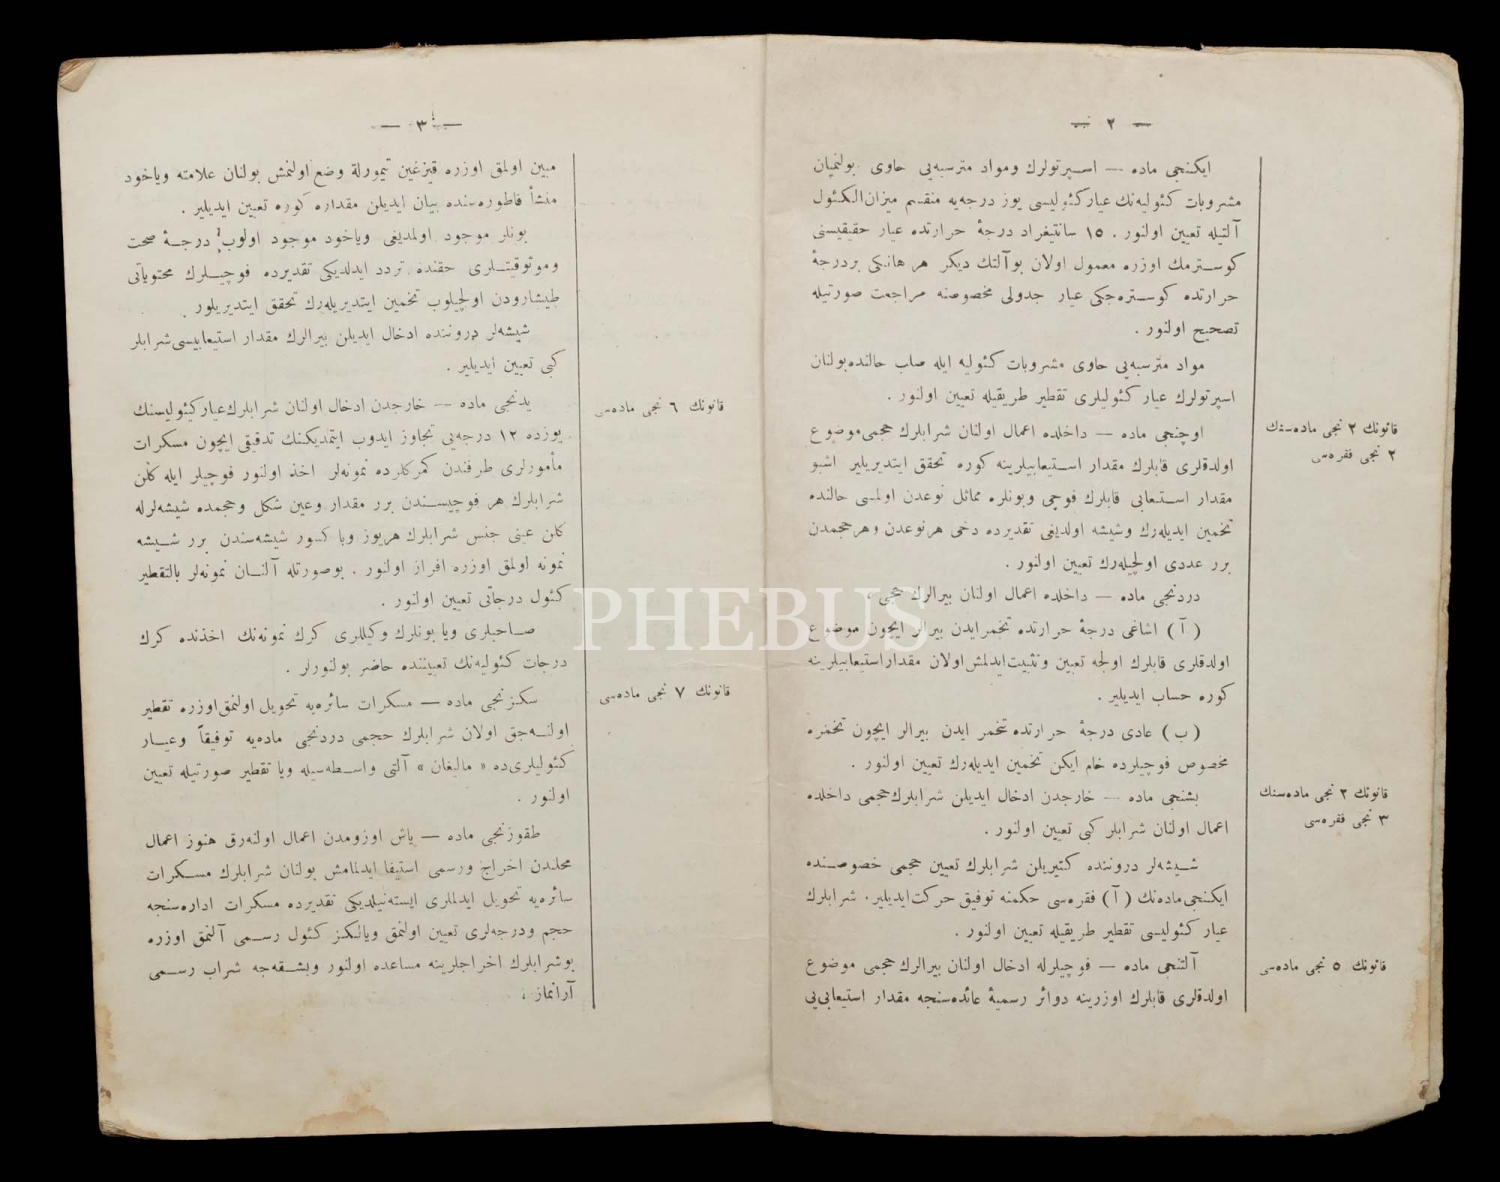 — ٢ —
ایكنجی ماده — اسپرتولرك ومواد مترسبه‌یی حاوی بولنمیان
مشروبات كئولیه‌نك عیار كئولیسی یوز درجه‌یه منقسم میزان الكئول
آلتیله تعیین اولنور . ١٥ سانتیغراد درجهٔ حرارتده عیار حقیقیسنی
كوسترمك اوزره معمول اولان بوآلتك دیكر هر هانكی بر درجهٔ
حرارتده كوستره‌جكی عیار جدولی مخصوصنه مراجعت صورتیله
تصحیح اولنور .
مواد مترسبه‌یی حاوی مشروبات كئولیه ایله صلب حالنده بولنان
اسپرتولرك عیار كئولیلری تقطیر طریقیله تعیین اولنور .
قانونك ٢ نجی ماده‌سنك
٢ نجی فقره‌سی
اوچنجی ماده — داخلده اعمال اولنان شرابلرك حجمی موضوع
اولدقلری قابلرك مقدار استیعابیلرینه كوره تحقق ایتدیریلیر اشبو
مقدار استیعابی قابلرك فوچی وبونلره مماثل نوعدن اولمسی حالنده
تخمین ایدیله‌رك وشیشه اولدیغی تقدیرده دخی هر نوعدن وهر حجمدن
برر عددی اولچیله‌رك تعیین اولنور .
دردنجی ماده — داخلده اعمال اولنان بیرالرك حجمی ،
( آ ) اشاغی درجهٔ حرارتده تخمر ایدن بیرالر ایچون موضوع
اولدقلری قابلرك اولجه تعیین وتثبیت ایدلمش اولان مقدار استیعابیلرینه
كوره حساب ایدیلیر .
( ب ) عادی درجهٔ حرارتده تخمر ایدن بیرالر ایچون تخمره
مخصوص فوچیلرده خام ایكن تخمین ایدیله‌رك تعیین اولنور .
قانونك ٢ نجی ماده‌سنك
٣ نجی فقره‌سی
بشنجی ماده — خارجدن ادخال ایدیلن شرابلرك حجمی داخلده
اعمال اولنان شرابلر كبی تعیین اولنور .
شیشه‌لر دروننده كتیریلن شرابلرك تعیین حجمی خصوصنده
ایكنجی ماده‌نك ( آ ) فقره‌سی حكمنه توفیق حركت ایدیلیر . شرابلرك
عیار كئولیسی تقطیر طریقیله تعیین اولنور .
قانونك ٥ نجی ماده‌سی
آلتنجی ماده — فوچیلرله ادخال اولنان بیرالرك حجمی موضوع
اولدقلری قابلرك اوزرینه دوائر رسمیهٔ عائده‌سنجه مقدار استیعابی‌یی
— ٣ —
مبین اولمق اوزره قیزغین تیمورله وضع اولنمش بولنان علامته ویاخود
منشأ فاطوره‌سنده بیان ایدیلن مقداره كوره تعیین ایدیلیر .
بونلر موجود اولمدیغی ویاخود موجود اولوب درجهٔ صحت
وموثوقیتلری حقنده تردد ایدلدیكی تقدیرده فوچیلرك محتویاتی
طیشارودن اولچیلوب تخمین ایتدیریله‌رك تحقق ایتدیریلور .
شیشه‌لر دروننده ادخال ایدیلن بیرالرك مقدار استیعابیسی شرابلر
كبی تعیین ایدیلیر .
قانونك ٦ نجی ماده‌سی
یدنجی ماده — خارجدن ادخال اولنان شرابلرك عیار كئولیسنك
یوزده ١٢ درجه‌یی تجاوز ایدوب ایتمدیكنك تدقیقی ایچون مسكرات
مأمورلری طرفندن كمركلرده نمونه‌لر اخذ اولنور فوچیلر ایله كلن
شرابلرك هر فوچیسندن برر مقدار وعین شكل وحجمده شیشه‌لرله
كلن عینی جنس شرابلرك هر یوز ویا كسور شیشه‌سندن برر شیشه
نمونه اولمق اوزره افراز اولنور . بوصورتله آلنان نمونه‌لر بالتقطیر
كئول درجاتی تعیین اولنور .
صاحبلری ویا بونلرك وكیللری كرك نمونه‌نك اخذنده كرك
درجات كئولیه‌نك تعییننده حاضر بولنورلر .
قانونك ٧ نجی ماده‌سی
سكزنجی ماده — مسكرات سائره‌یه تحویل اولنمق اوزره تقطیر
اولنه‌جق اولان شرابلرك حجمی دردنجی ماده‌یه توفیقاً وعیار
كئولیلری‌ده « مالیغان » آلتی واسطه‌سیله ویا تقطیر صورتیله تعیین
اولنور .
طقوزنجی ماده — یاش اوزومدن اعمال اولنه‌رق هنوز اعمال
محلندن اخراج ورسمی استیفا ایدلمامش بولنان شرابلرك مسكرات
سائره‌یه تحویل ایدلملری ایسته‌نیلدیكی تقدیرده مسكرات اداره‌سنجه
حجم ودرجه‌لری تعیین اولنمق ویالكز كئول رسمی آلنمق اوزره
بوشرابلرك اخراجلرینه مساعده اولنور وبشقه‌جه شراب رسمی
آرانماز .
PHEBUS